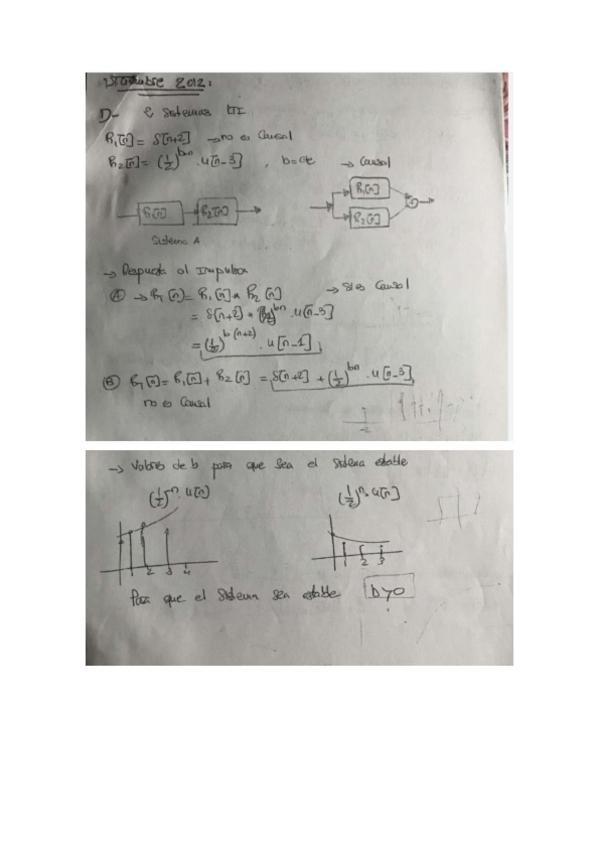 2012:
D- 2 Sistemas LTI
h₁[n] = δ[n+2] → no es Causal
h₂[n] = (1/2)^bn · u[n-3] , b=cte → Causal
h₁[n] h₂[n]
h₁[n]
h₂[n]
+
Sistema A
→ Respuesta al Impulso
Ⓐ → h_T[n] = h₁[n] * h₂[n] → Si es Causal
= δ[n+2] * (1/2)^bn · u[n-3]
= (1/2)^b(n+2) · u[n-1]
Ⓑ h_T[n] = h₁[n] + h₂[n] = δ[n+2] + (1/2)^bn · u[n-3]
no es Causal
-2
→ Valores de b para que sea el sistema estable
(1/2)^n · u[n] (1/2)^n · u[n]
2 3 4 2 3
Para que el sistema sea estable b>0